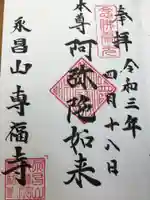 奉拝
令和三年
四月十八日
本尊
阿弥陀如来
永昌山専福寺